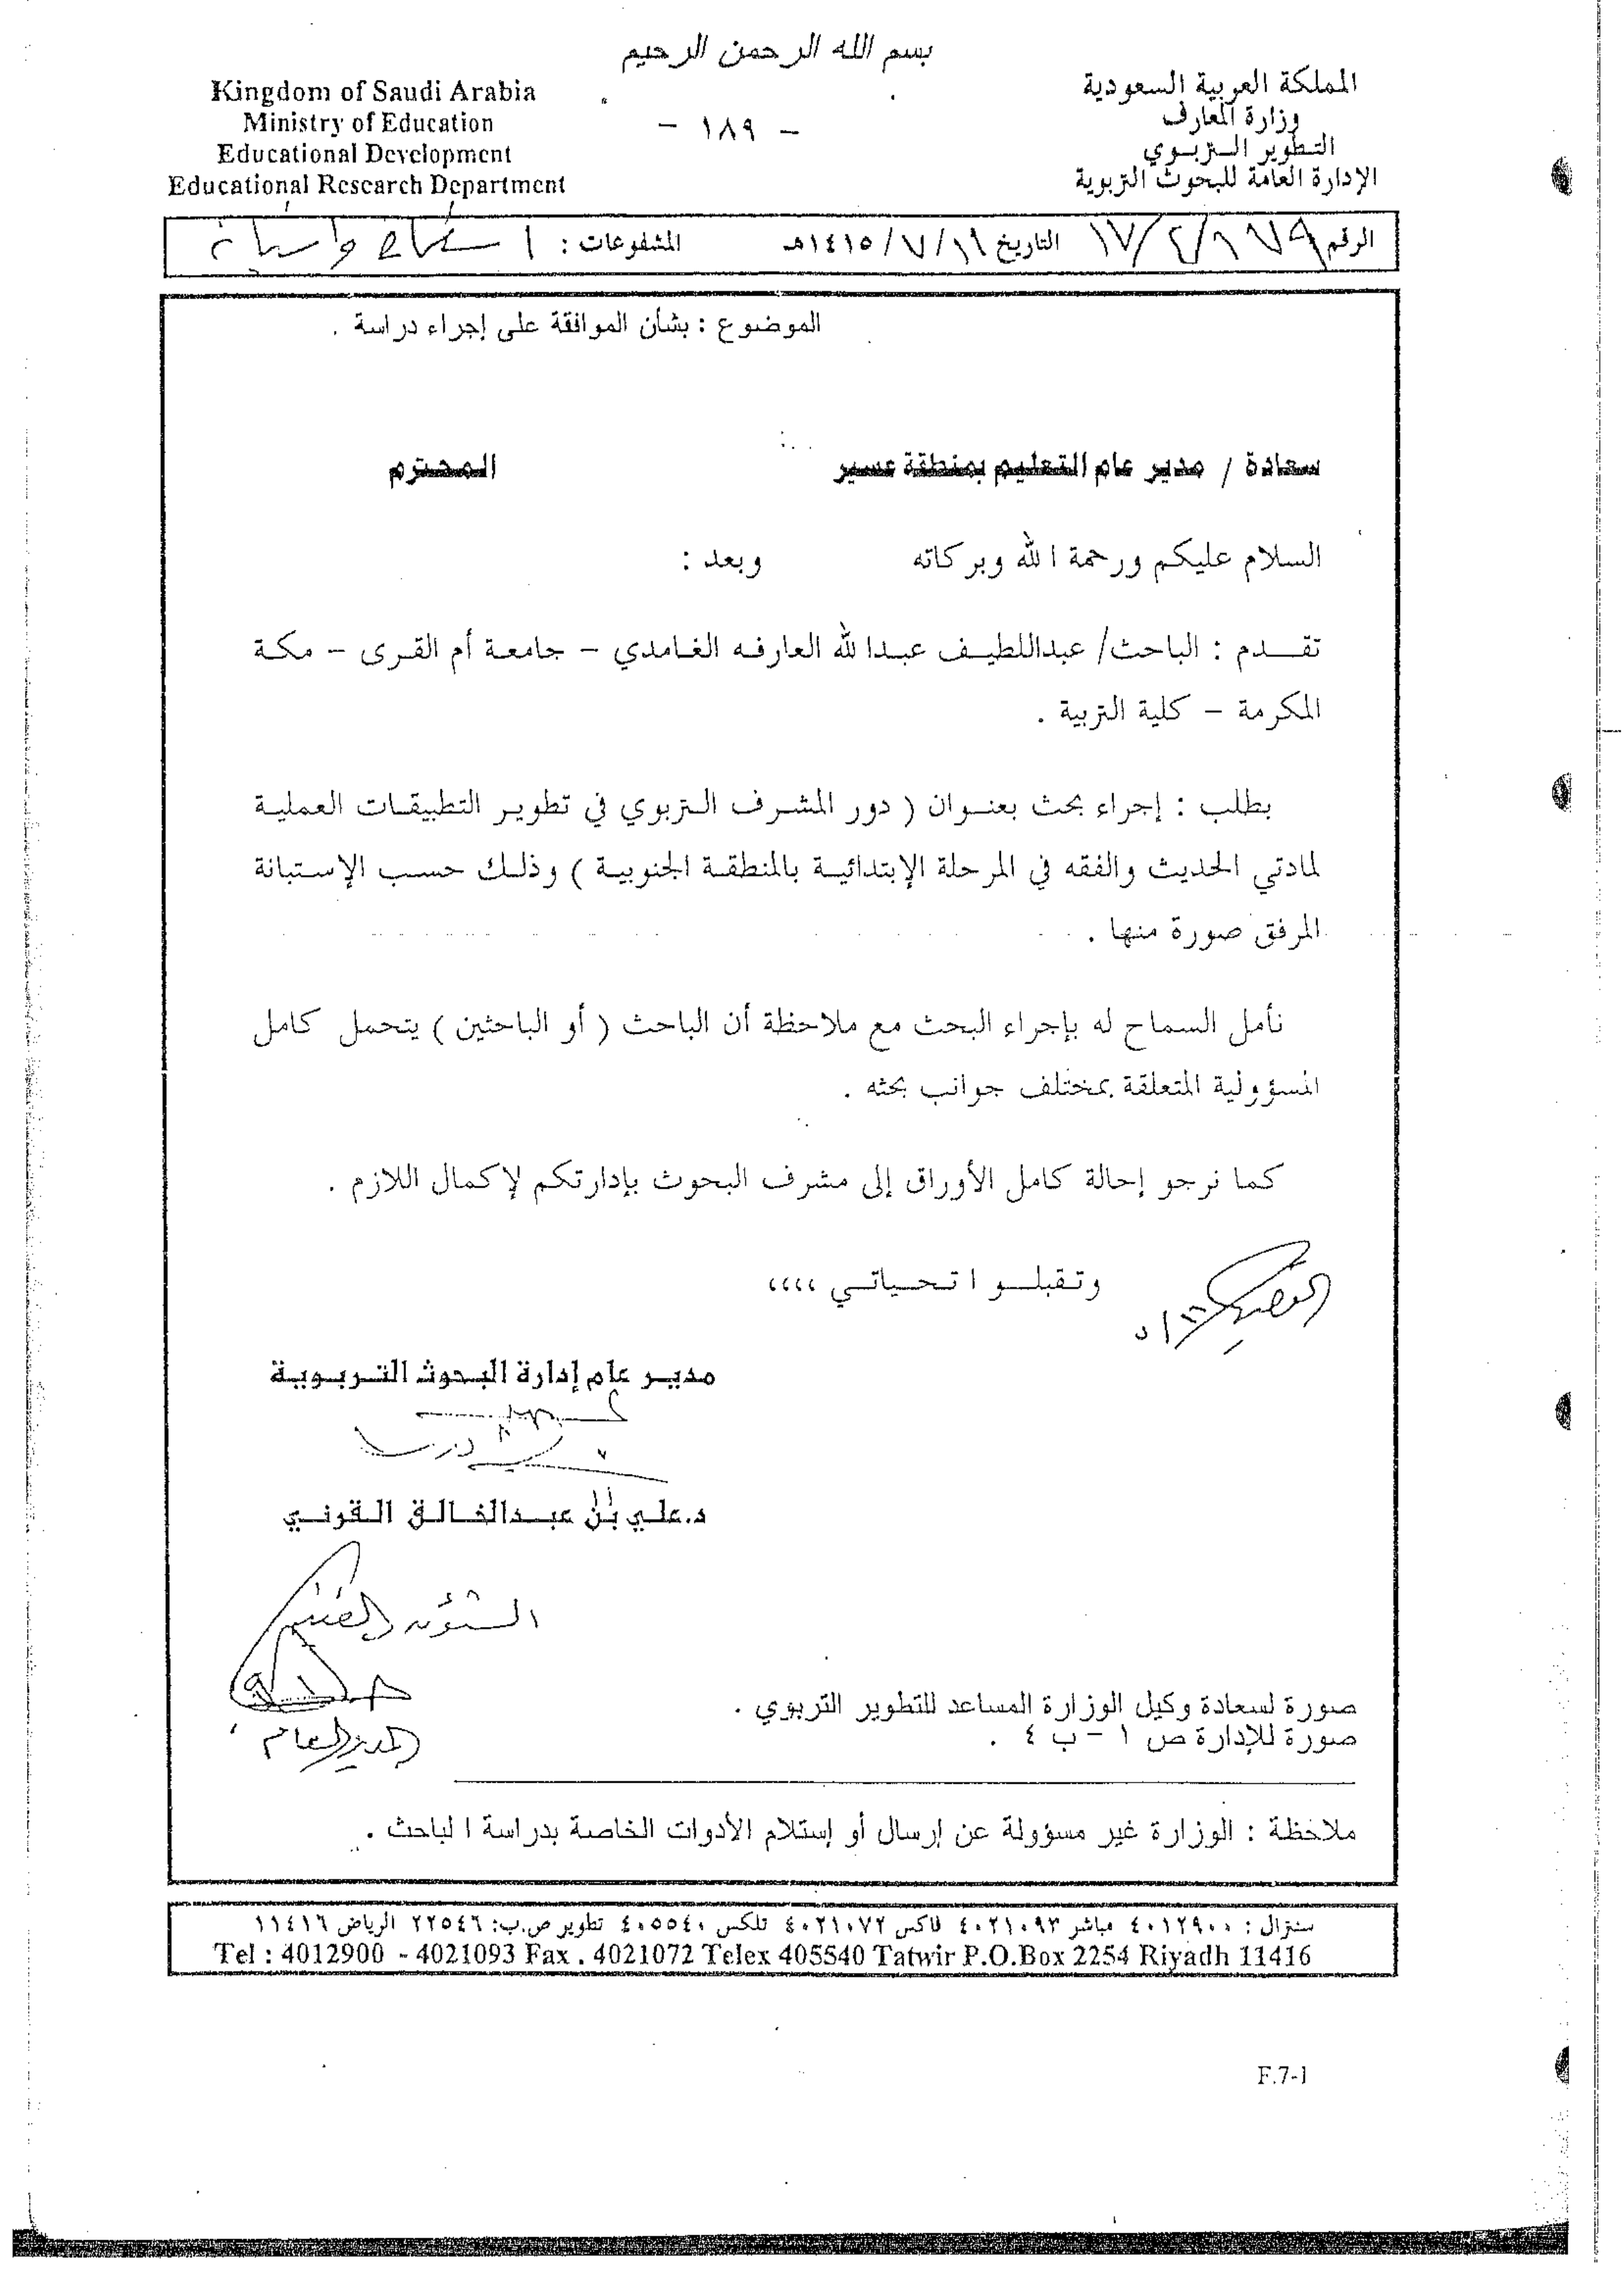 بسم الله الرحمن الرحيم
Kingdom of Saudi Arabia
Ministry of Education
Educational Development
Educational Research Department
- ١٨٩ -
المملكة العربية السعودية
وزارة المعارف
التطوير التربوي
الإدارة العامة للبحوث التربوية
الرقم التاريخ ١٤١٥/٧/١٩هـ المشفوعات :
الموضوع : بشأن الموافقة على إجراء دراسة .
سعادة / مدير عام التعليم بمنطقة عسير المحترم
السلام عليكم ورحمة الله وبركاته وبعد :
تقدم : الباحث/ عبداللطيف عبدالله العارفه الغامدي – جامعة أم القرى – مكة
المكرمة – كلية التربية .
بطلب : إجراء بحث بعنوان ( دور المشرف التربوي في تطوير التطبيقات العملية
لمادتي الحديث والفقه في المرحلة الإبتدائية بالمنطقة الجنوبية ) وذلك حسب الإستبانة
المرفق صورة منها .
نأمل السماح له بإجراء البحث مع ملاحظة أن الباحث ( أو الباحثين ) يتحمل كامل
المسؤولية المتعلقة بمختلف جوانب بحثه .
كما نرجو إحالة كامل الأوراق إلى مشرف البحوث بإدارتكم لإكمال اللازم .
وتقبلوا تحياتي ،،،،
مدير عام إدارة البحوث التربوية
د.علي بن عبدالخالق القرني
المدير العام
صورة لسعادة وكيل الوزارة المساعد للتطوير التربوي .
صورة للإدارة ص ١ – ب ٤ .
ملاحظة : الوزارة غير مسؤولة عن إرسال أو إستلام الأدوات الخاصة بدراسة الباحث .
سنترال : ٤٠١٢٩٠٠ مباشر ٤٠٢١٠٩٣ فاكس ٤٠٢١٠٧٢ تلكس ٤٠٥٥٤٠ تطوير ص.ب: ٢٢٥٤٦ الرياض ١١٤١٦
Tel : 4012900 - 4021093 Fax . 4021072 Telex 405540 Tatwir P.O.Box 2254 Riyadh 11416
F.7-1